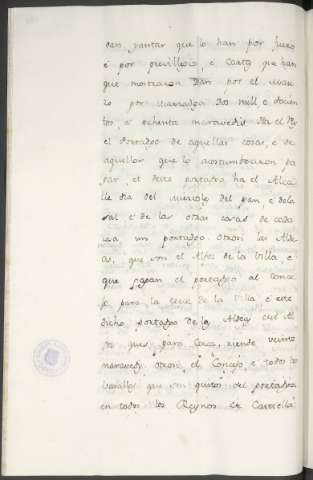 dan yantar que lo han por fuero
é por previllejio, é Carta que han
que mostraron Dan por el
por Dos mill e docien
tos, é ochenta maravedis Ha el Rey
el Portadgo de aquellas cosas, é de
aquellos que lo acostumbraron da
dar, et deste portadgo ha el Alca
lle dia del mercado del pan, é dela
sal, é de las otras cosas de cada
un portadgo, otrosi las Alde
as, que son el Alfoz de la Villa, é
que pagan el portadgo al Conce
jo para la cerca de la Villa é este
dicho portadgo de las Aldeas
que es para Cerca, riende veinte
maravedis otrosi, el Concejo, é todos los
vasallos que son quitos del portadgo
en todos los Reynos de Castiella